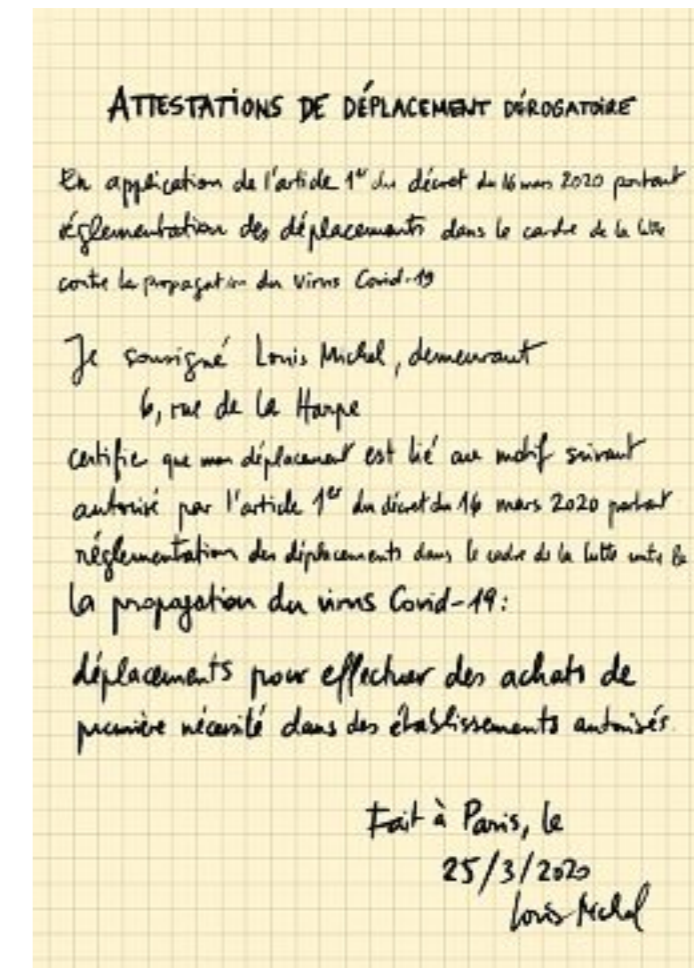 ATTESTATIONS DE DÉPLACEMENT DÉROGATOIRE
En application de l'article 1er du décret du 16 mars 2020 portant
réglementation des déplacements dans le cadre de la lutte
contre la propagation du virus Covid-19
Je soussigné Louis Michel, demeurant
6, rue de la Harpe
certifie que mon déplacement est lié au motif suivant
autorisé par l'article 1er du décret du 16 mars 2020 portant
réglementation des déplacements dans le cadre de la lutte contre la
la propagation du virus Covid-19:
déplacements pour effectuer des achats de
première nécessité dans des établissements autorisés.
Fait à Paris, le
25/3/2020
Louis Michel